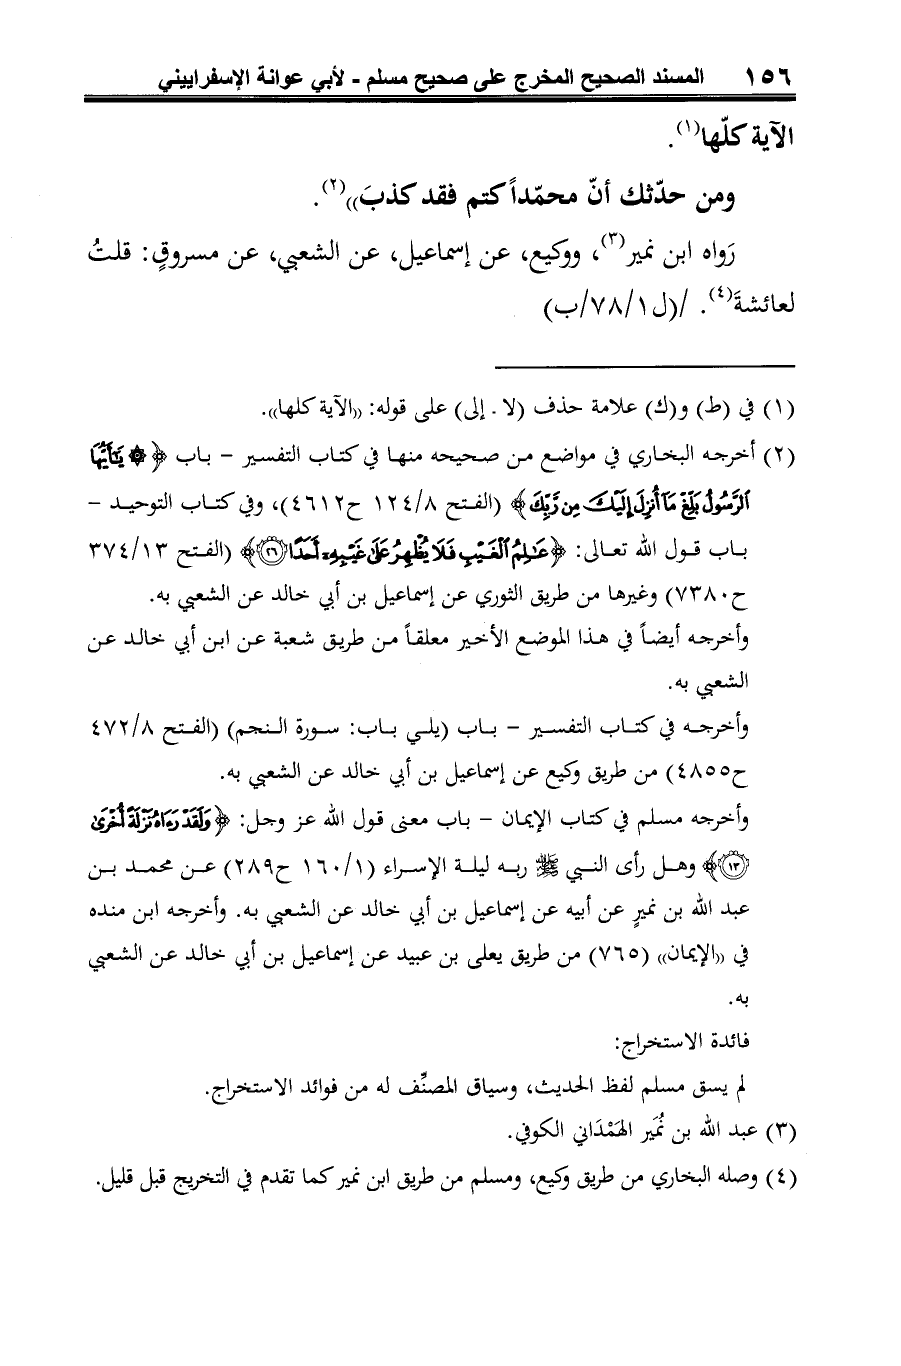 ١٥٦ المسند الصحيح المخرج على صحيح مسلم - لأبي عوانة الإسفراييني
الآية كلّها(١).
ومن حدّثك أنّ محمّداً كتم فقد كذبَ))(٢).
رَواه ابن نمير(٣)، ووكيع، عن إسماعيل، عن الشعبي، عن مسروقٍ: قلتُ
لعائشةَ(٤). /(ل٧٨/١/ب)
(١) في (ط) و(ك) علامة حذف (لا . إلى) على قوله: ((الآية كلها)).
(٢) أخرجه البخاري في مواضع من صحيحه منها في كتاب التفسير - باب ﴿۞ يَٰٓأَيُّهَا
ٱلرَّسُولُ بَلِّغۡ مَآ أُنزِلَ إِلَيۡكَ مِن رَّبِّكَ﴾ (الفتح ١٢٤/٨ ح٤٦١٢)، وفي كتاب التوحيد -
باب قول الله تعالى: ﴿عَٰلِمُ ٱلۡغَيۡبِ فَلَا يُظۡهِرُ عَلَىٰ غَيۡبِهِۦٓ أَحَدًا ٢٦﴾ (الفتح ٣٧٤/١٣
ح٧٣٨٠) وغيرها من طريق الثوري عن إسماعيل بن أبي خالد عن الشعبي به.
وأخرجه أيضاً في هذا الموضع الأخير معلقاً من طريق شعبة عن ابن أبي خالد عن
الشعبي به.
وأخرجه في كتاب التفسير - باب (يلي باب: سورة النجم) (الفتح ٤٧٢/٨
ح٤٨٥٥) من طريق وكيع عن إسماعيل بن أبي خالد عن الشعبي به.
وأخرجه مسلم في كتاب الإيمان - باب معنى قول الله عز وجل: ﴿وَلَقَدۡ رَءَاهُ نَزۡلَةً أُخۡرَىٰ
١٣﴾ وهل رأى النبي ﷺ ربه ليلة الإسراء (١٦٠/١ ح٢٨٩) عن محمد بن
عبد الله بن نميرٍ عن أبيه عن إسماعيل بن أبي خالد عن الشعبي به. وأخرجه ابن منده
في ((الإيمان)) (٧٦٥) من طريق يعلى بن عبيد عن إسماعيل بن أبي خالد عن الشعبي
به.
فائدة الاستخراج:
لم يسق مسلم لفظ الحديث، وسياق المصنِّف له من فوائد الاستخراج.
(٣) عبد الله بن نُمَير الهَمْدَاني الكوفي.
(٤) وصله البخاري من طريق وكيع، ومسلم من طريق ابن نمير كما تقدم في التخريج قبل قليل.